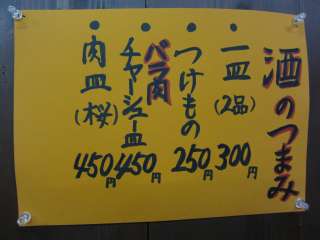 酒のつまみ
一皿(2品) 300円
つけもの 250円
バラ肉チャーシュー皿 450円
肉皿(桜) 450円